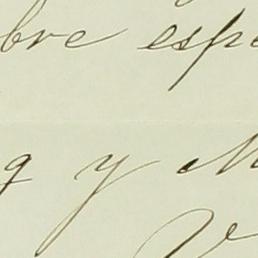 bre espe
q y M
V